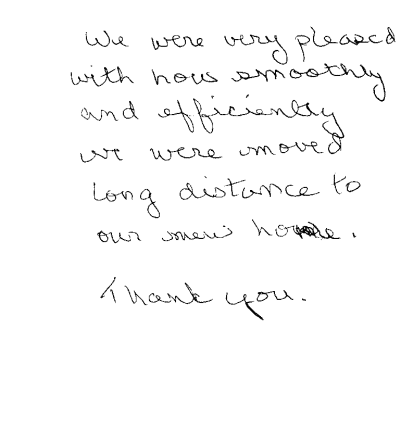 We were very pleased
with how smoothly
and efficiently
we were moved
long distance to
our new home.
Thank you.